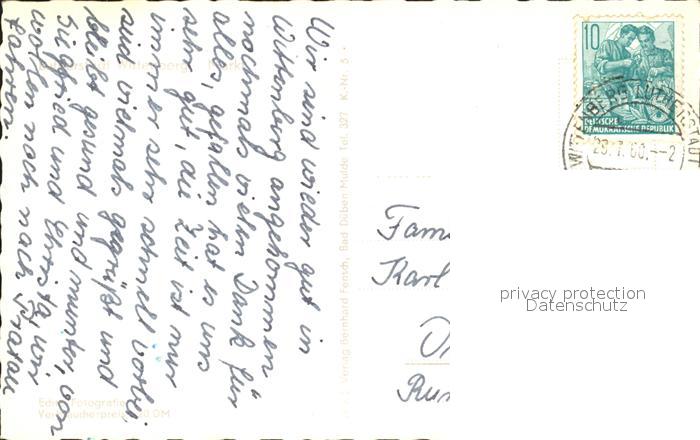 Wir sind wieder gut in
Wittenberg angekommen
nochmals vielen Dank für
alles, gefallen hat es uns
sehr gut, die Zeit ist nur
immer sehr schnell vorbei,
seid vielmals gegrüßt und
bleibt gesund und munter, von
Siegfried und Christa, wir
wollen noch nach Pratau
fahren.
Lutherstadt Wittenberg Markt
Echte Fotografie
Verbraucherpreis 0,20 DM
Verlag Bernhard Fensch, Bad Düben-Mulde Tel. 327 K.-Nr. 5
10
DEUTSCHE
DEMOKRATISCHE REPUBLIK
WITTENBERG LUTHERSTADT
Fam
Karl
privacy protection
Datenschutz